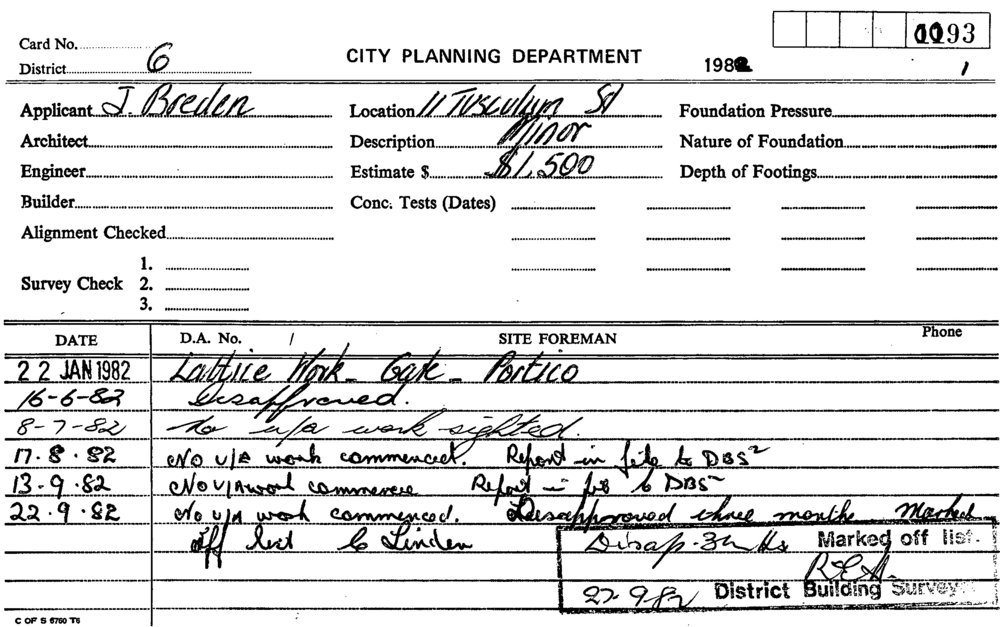 Card No. 0093
District 6 CITY PLANNING DEPARTMENT 1982 1
Applicant J. Breden Location 11 Tusculum St Foundation Pressure
Architect Description Minor Nature of Foundation
Engineer Estimate $ $1,500 Depth of Footings
Builder Conc. Tests (Dates)
Alignment Checked
1.
Survey Check 2.
3.
DATE D.A. No. / SITE FOREMAN Phone
22 JAN 1982 Lattice Work - Gate - Portico
16-6-82 Disapproved.
8-7-82 No u/a work sighted.
17.8.82 No u/a work commenced. Report in file to DBS
13-9.82 No u/a work commence Report in file to DBS
22.9.82 No u/a work commenced. Disapproved three months Marked
off list C Linden
Disap. Marked off list.
27.9.82 District Building Surveyor
C OF S 6760 T6